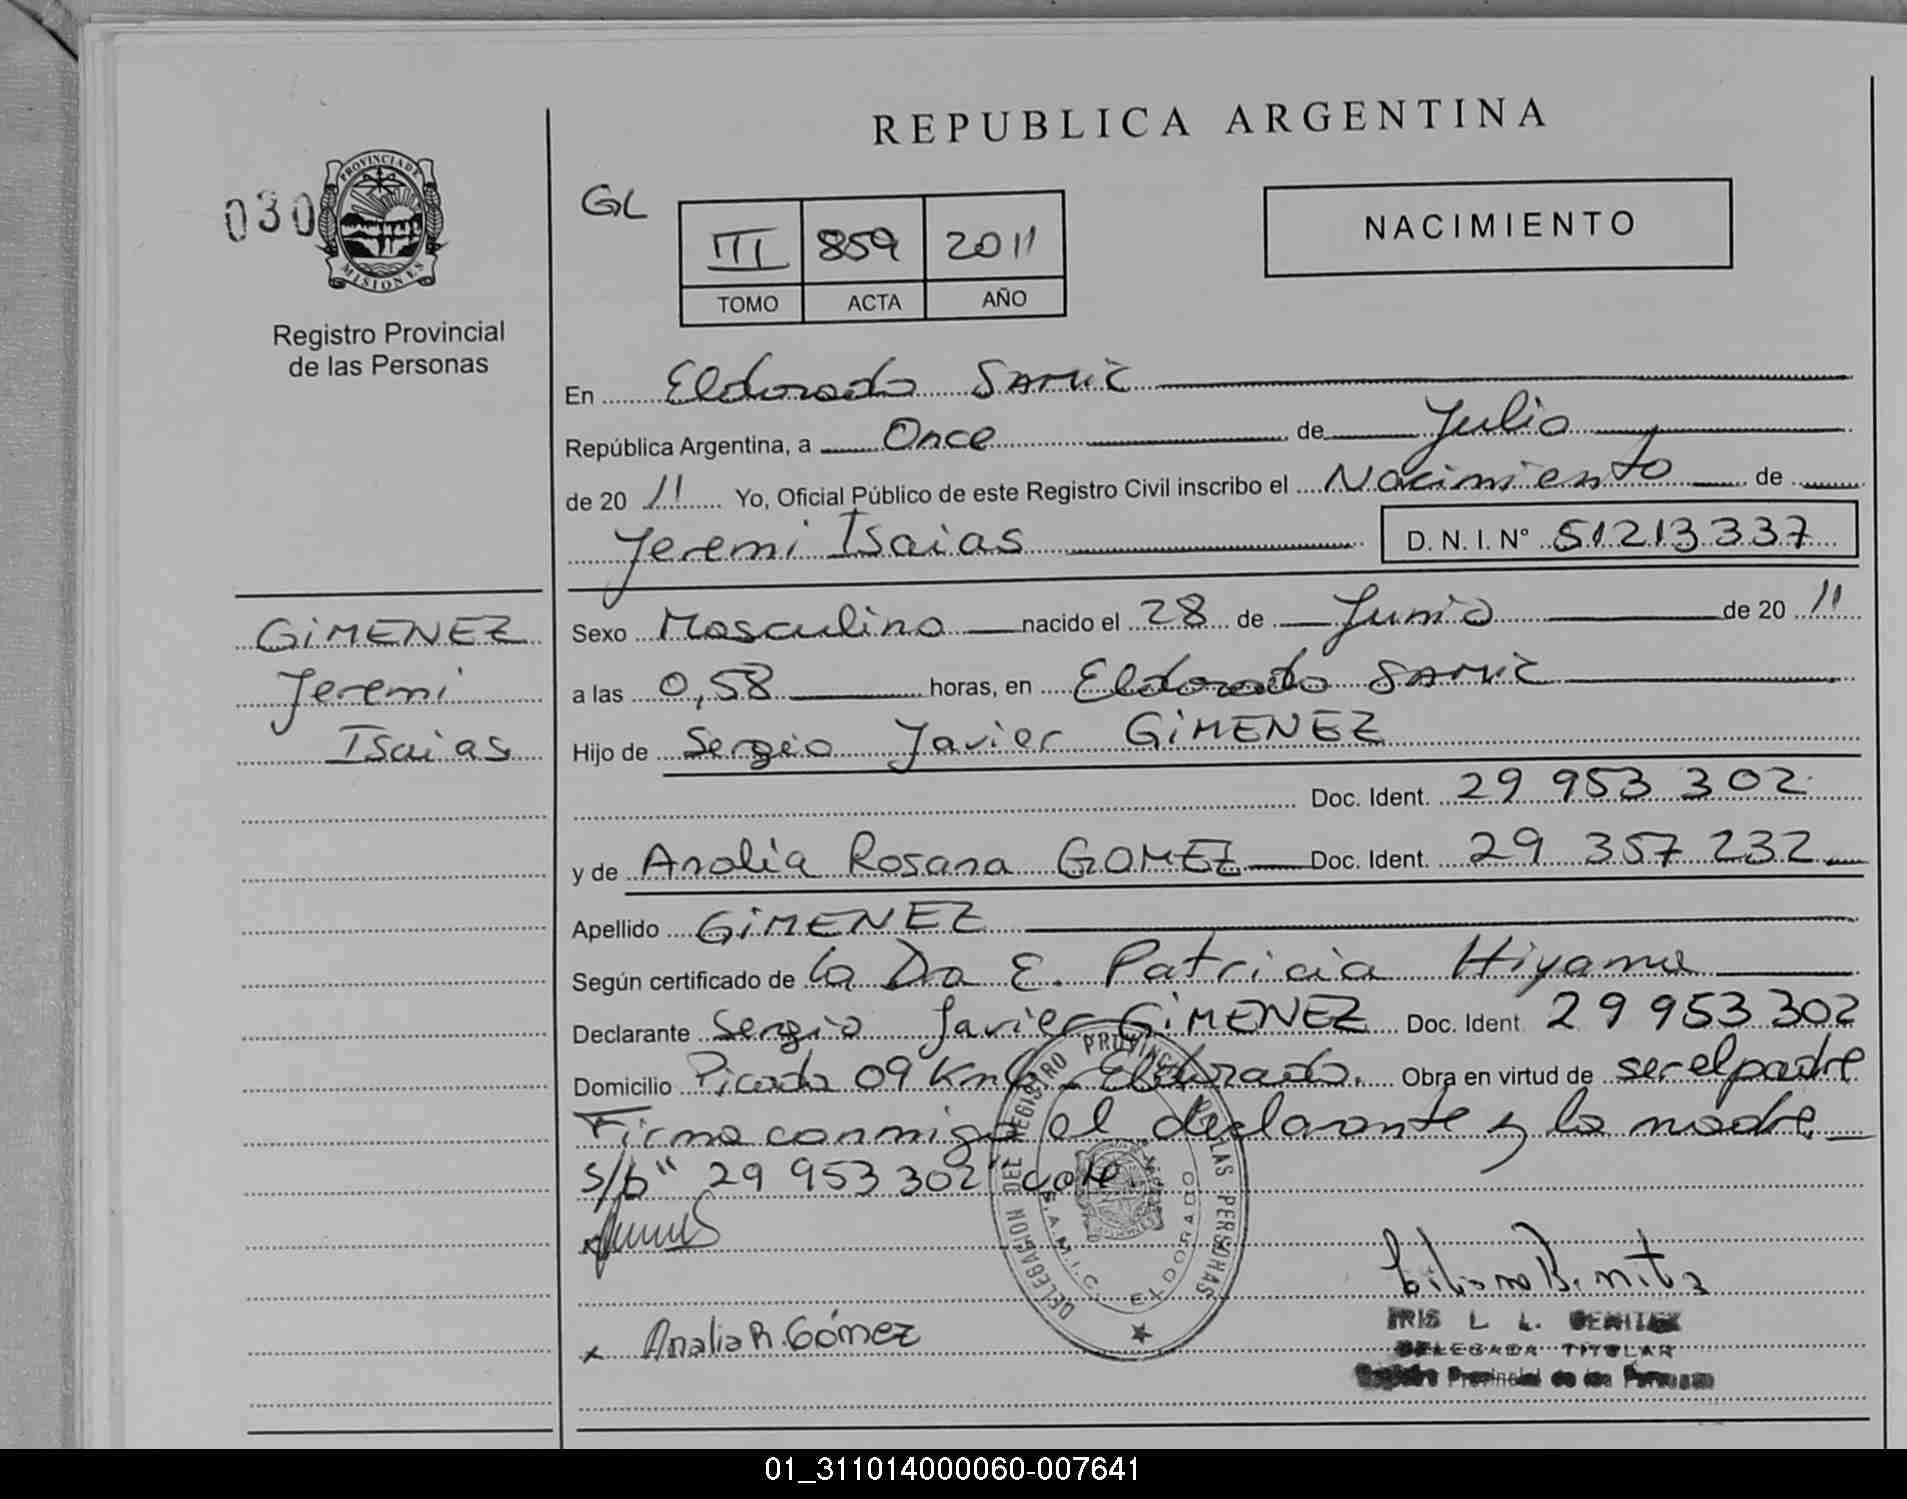 REPUBLICA ARGENTINA
030
PROVINCIA DE
MISIONES
Registro Provincial
de las Personas
GL
III 859 2011
TOMO ACTA AÑO
NACIMIENTO
En Eldorado SAMIC
República Argentina, a Once de Julio
de 2011 Yo, Oficial Público de este Registro Civil inscribo el Nacimiento de
Jeremi Isaias D. N. I. N° 51213337
GIMENEZ
Jeremi
Isaias
Sexo Masculino nacido el 28 de Junio de 2011
a las 0,58 horas, en Eldorado SAMIC
Hijo de Sergio Javier GIMENEZ
Doc. Ident. 29 953 302
y de Analia Rosana GOMEZ Doc. Ident. 29 357 232
Apellido GIMENEZ
Según certificado de la Dra E. Patricia Hiyama
Declarante Sergio Javier GIMENEZ Doc. Ident 29 953 302
Domicilio Picada 09 Km - Eldorado. Obra en virtud de ser el padre
Firma conmigo el declarante y la madre
s/b "29 953 302" vale.
DELEGACION DEL REGISTRO PROVINCIAL DE LAS PERSONAS
S.A.M.I.C. ELDORADO
x Analia R. Gómez
Liliana Benitez
IRIS L. L. BENITEZ
DELEGADA TITULAR
Registro Provincial de las Personas
01_311014000060-007641